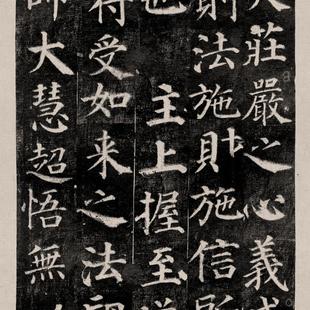 莊嚴之心義
則法施財施信
也 主上握至道
受如来之法印
師大慧超悟無